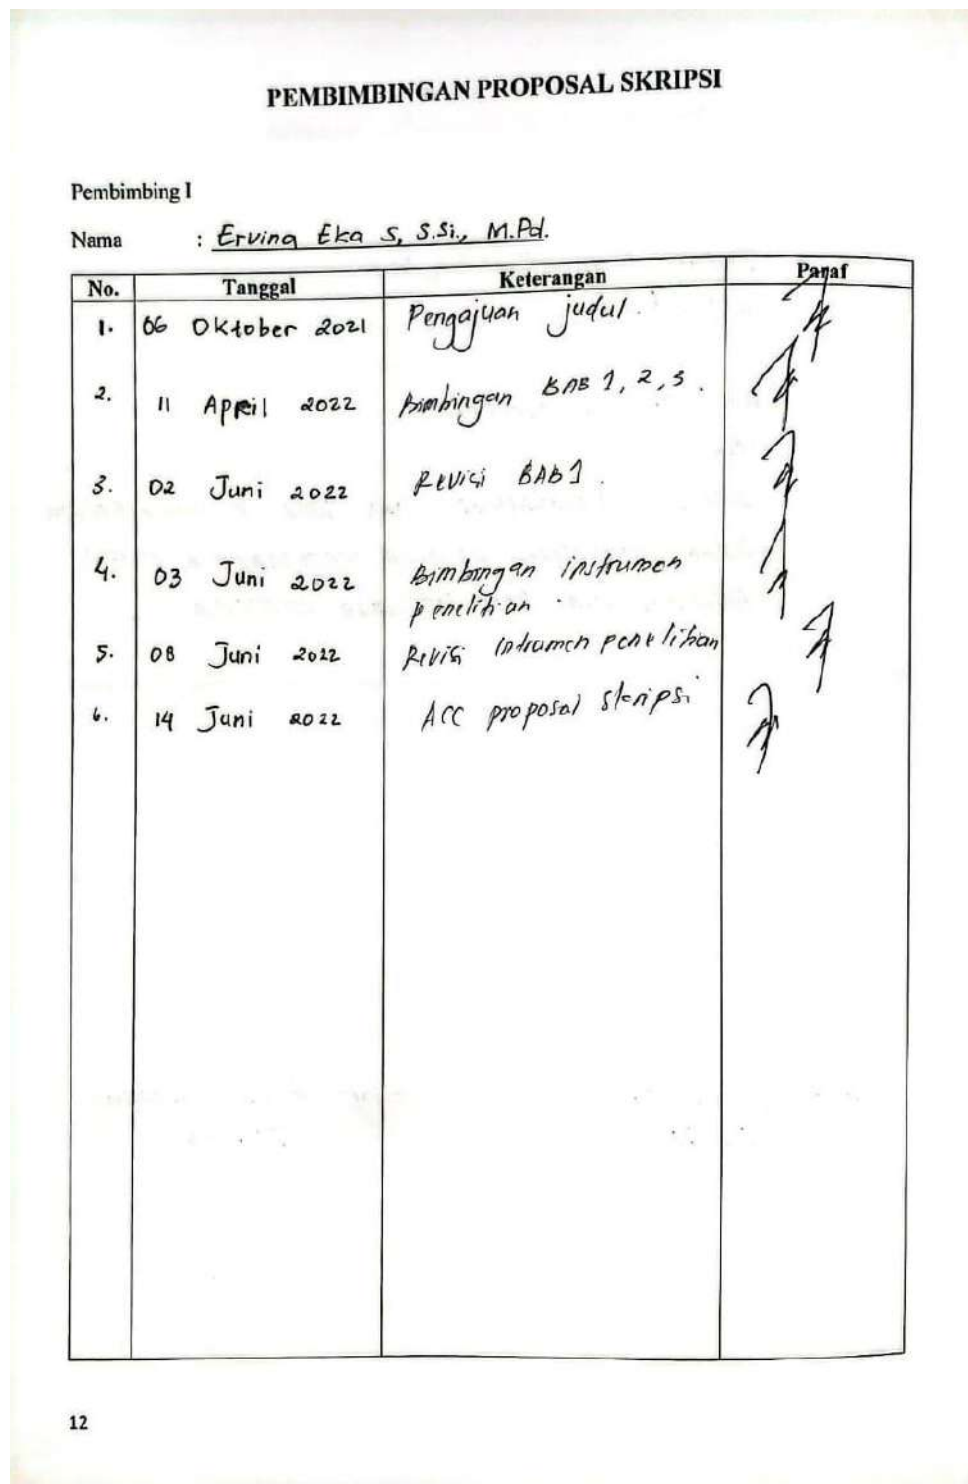 PEMBIMBINGAN PROPOSAL SKRIPSI
Pembimbing I
Nama : Ervina Eka S, S.Si., M.Pd.
No. Tanggal Keterangan Paraf
1. 06 Oktober 2021 Pengajuan judul.
2. 11 April 2022 Bimbingan BAB 1, 2, 3.
3. 02 Juni 2022 Revisi BAB 1.
4. 03 Juni 2022 Bimbingan instrumen
penelitian.
5. 08 Juni 2022 Revisi intrumen penelitian
6. 14 Juni 2022 ACC proposal skripsi
12